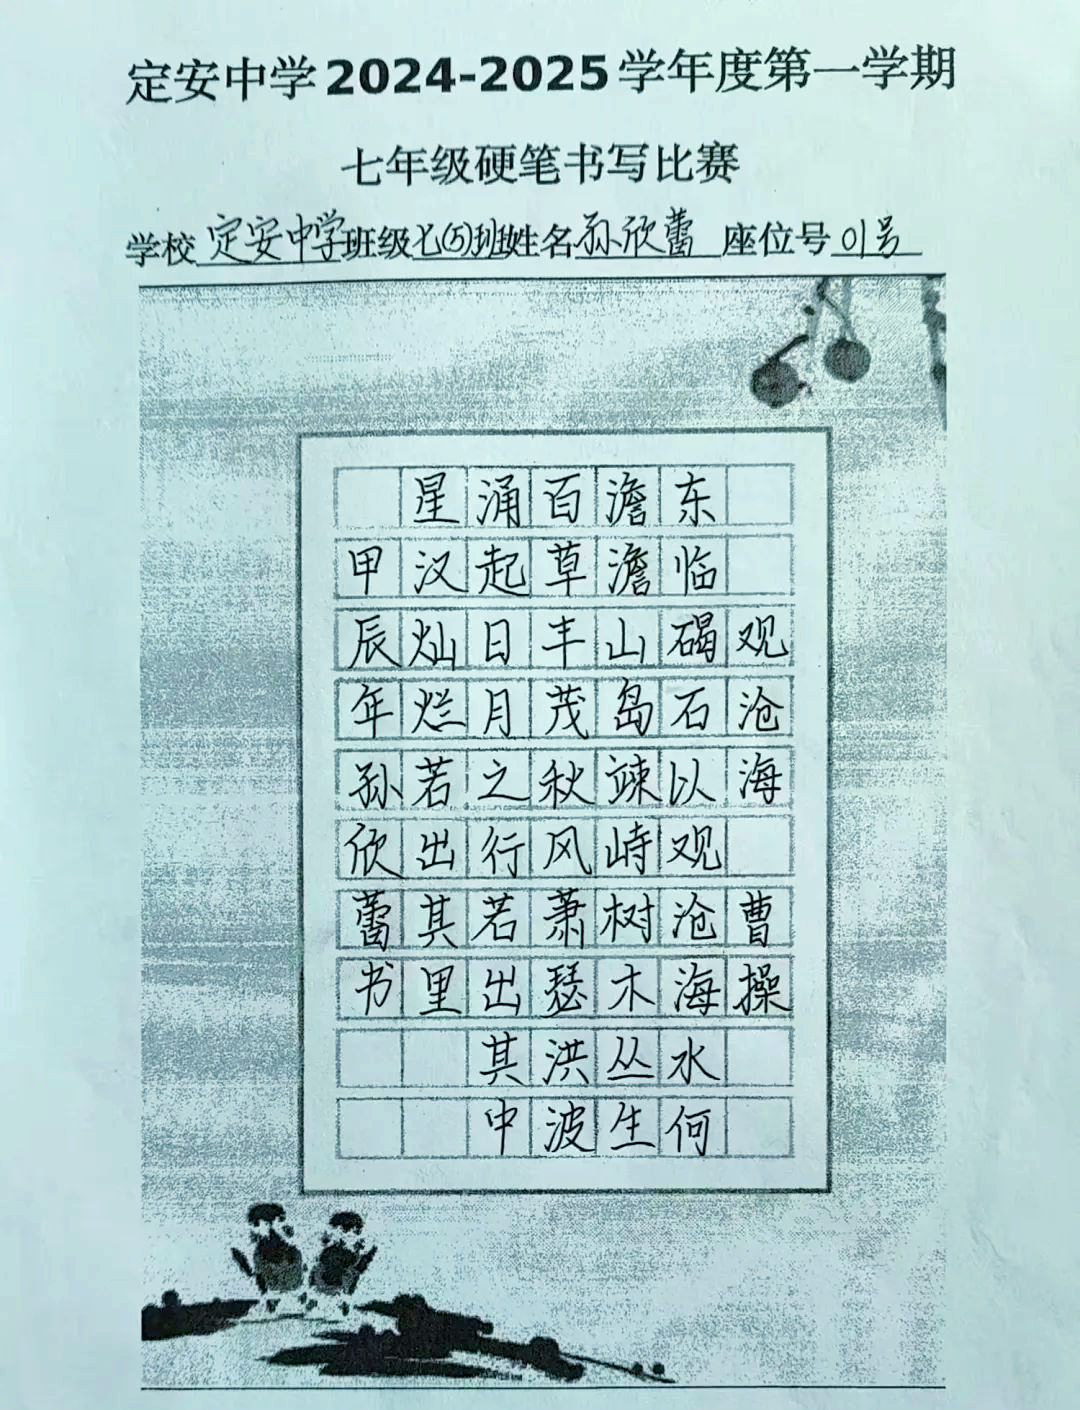 定安中学2024-2025学年度第一学期
七年级硬笔书写比赛
学校 定安中学 班级 七(5)班 姓名 孙欣蕾 座位号 01号
观沧海 曹操
东临碣石以观沧海水何
澹澹山岛竦峙树木丛生
百草丰茂秋风萧瑟洪波
涌起日月之行若出其中
星汉灿烂若出其里
甲辰年孙欣蕾书